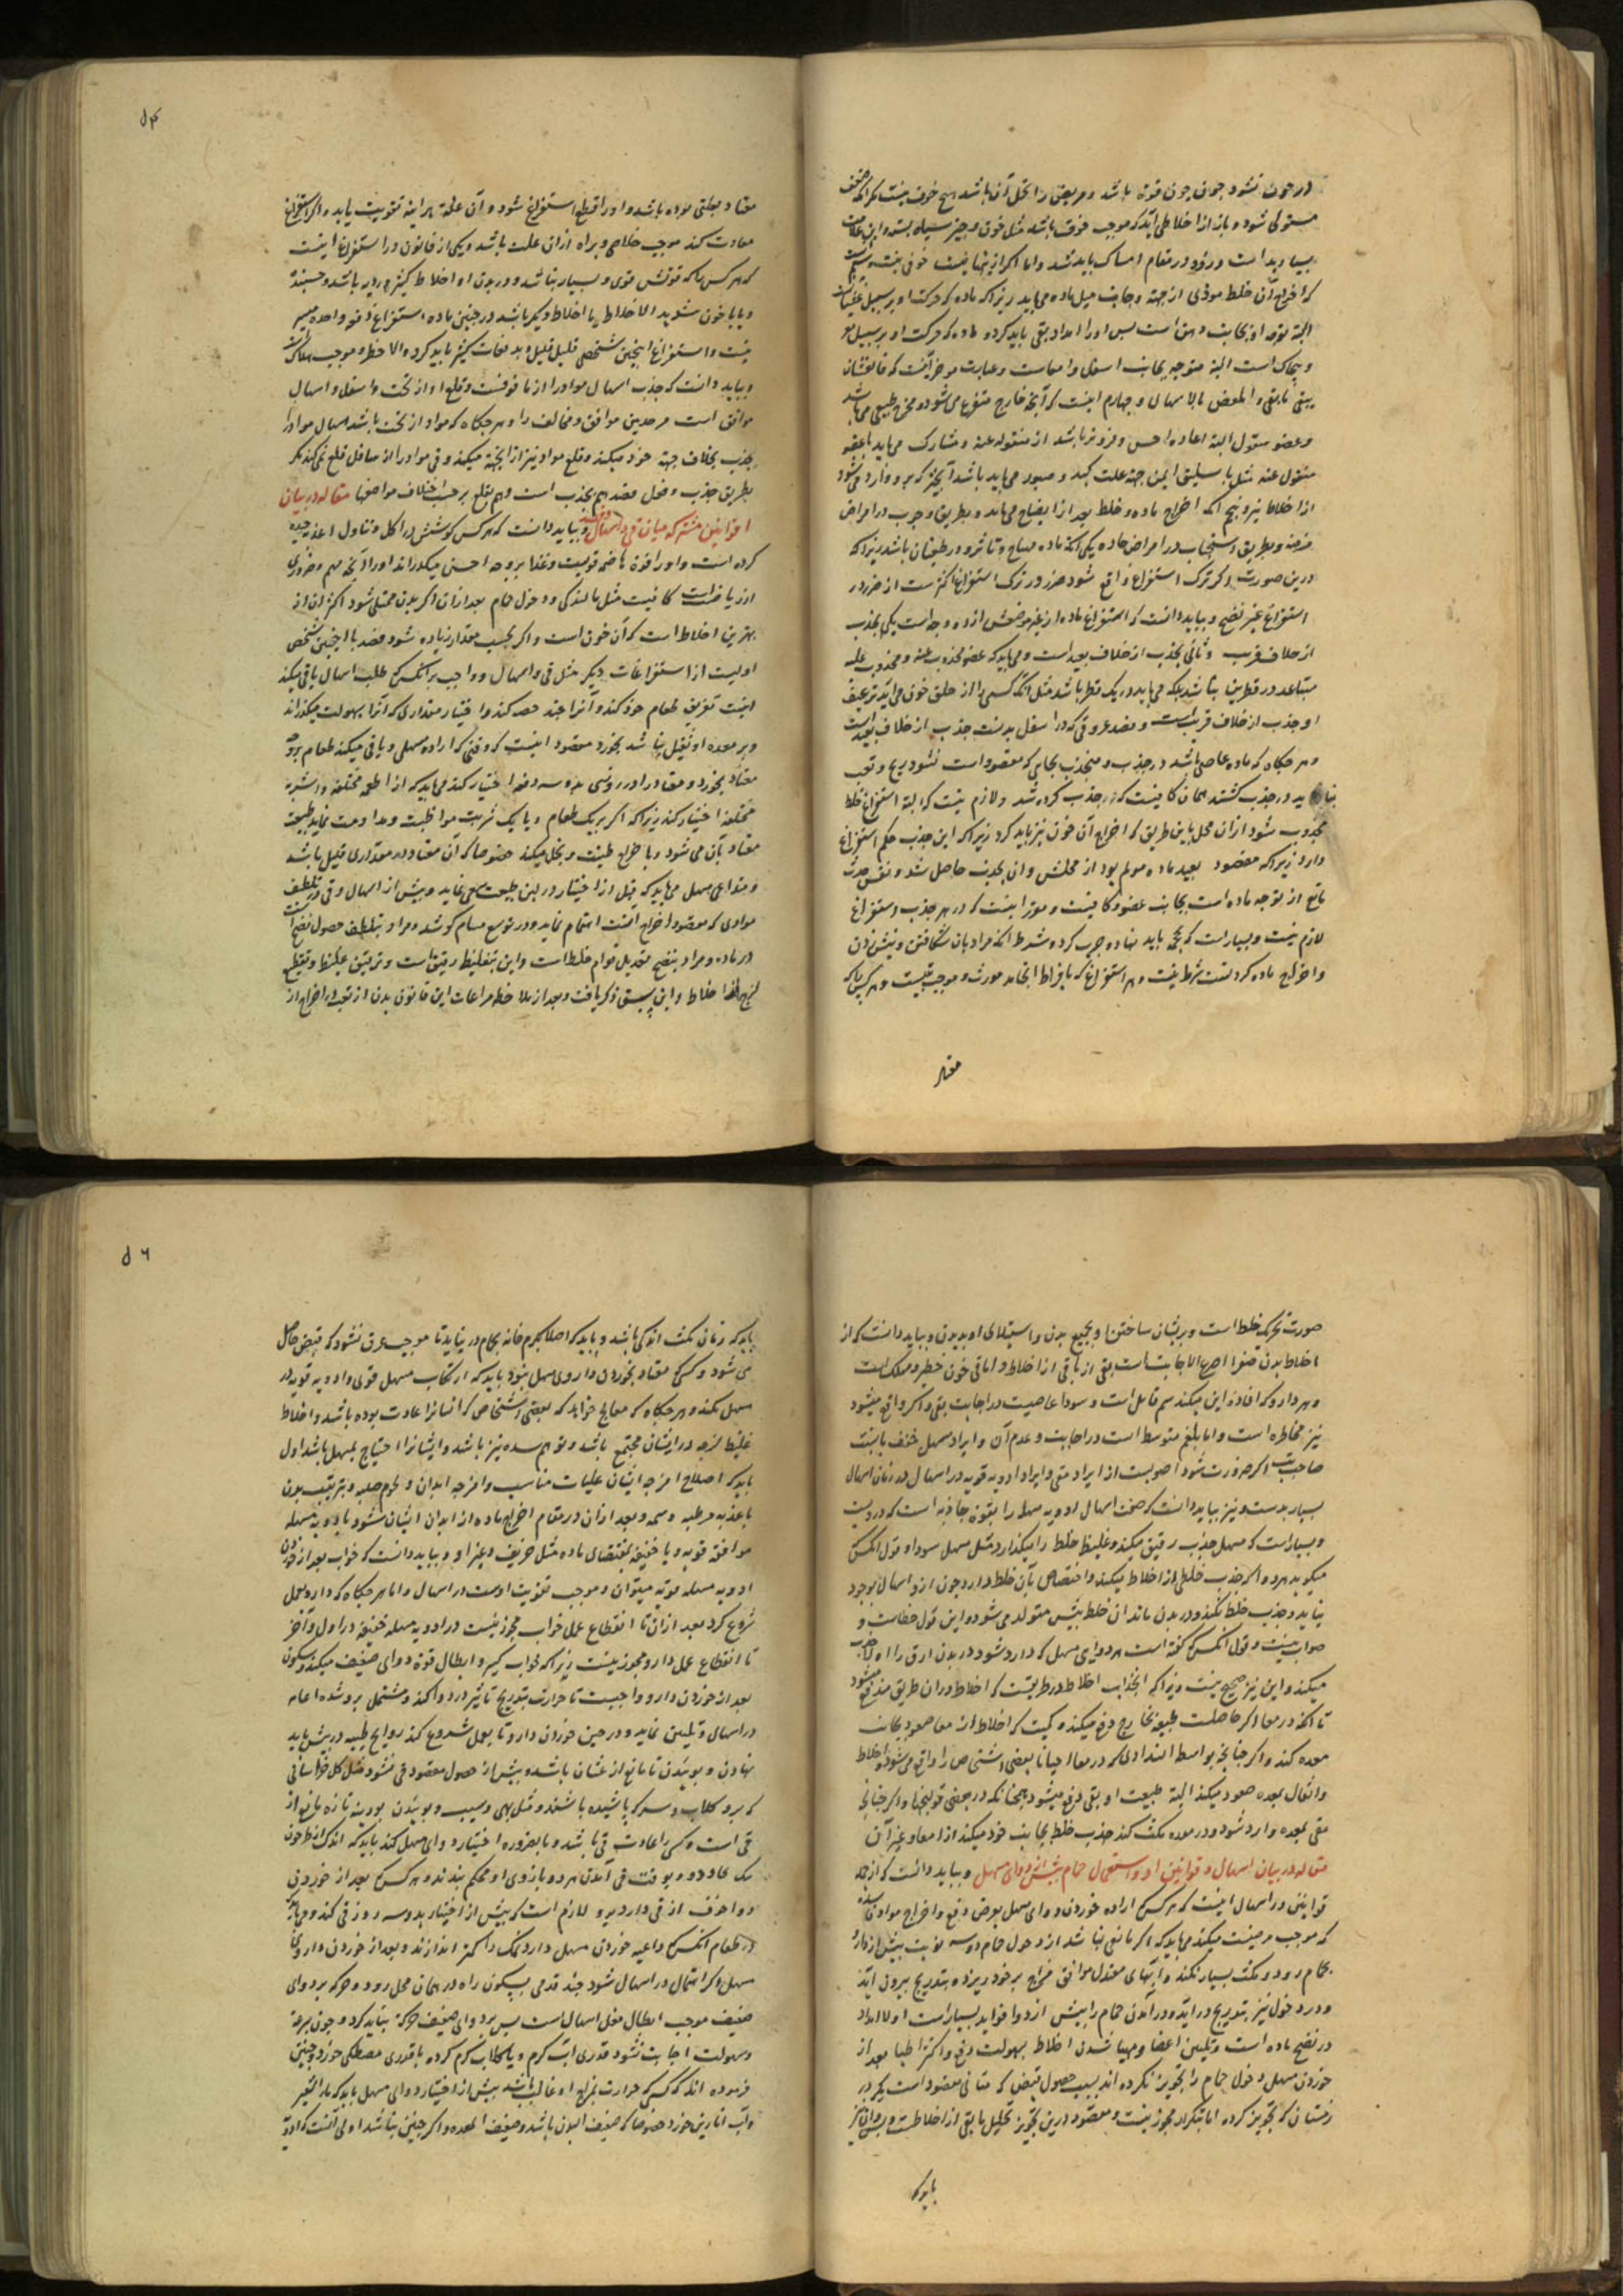 در خون نشود چون چون قوة باشد و مریض را تحمل آن باشد هیچ خوف نیست مکر آنکه ضعف
مستولی شود و باز از اخلاطی آید که موجب خوف باشد مثل خون و چیز سیاه بسته و این علامت
بسیار بد است و زود در مقام امساک باید شد و اما اکر از اینها نیست خوفی نیست
که اخراج آن خلط موذی از جهة و جانب میل ماده می باید زیرا که ماده که حرکت او بر سبیل غثیان
البته توجه او بجانب دهن است پس او را امداد بقی باید کرد و ماده که حرکت او بر سبیل
است البته متوجه بجانب اسفل و امعاست و عبارت موجز آنست که فالغثیان
ینقی بالقی و المغص بالاسهال و چهارم اینست که آنچه خارج متفرع می شود و مخرج طبیعی می باشد
و عضو منقول الیه اخس و فروتر باشد از منقول عنه و مشارک می باید با عضو
منقول عنه مثل باسلیق ایمن جهة علت کبد و صبور می باید باشد آنچیز که برو وارد می شود
از اخلاط نیز و پنجم آنکه اخراج ماده و خلط بعد از انضاج می باید و بطریق وجوب در امراض
مزمنه و بطریق استحباب در امراض حاده
درین صورت اکر ترک استفراغ واقع شود ضرر در ترک استفراغ اکثرست از ضرر در
استفراغ غیر نضیج و بباید دانست که استفراغ ماده از غیر موضعش از دو وجه است یکی بجذب
از خلاف قریب و ثانی بجذب از خلاف بعید است و می باید که عضو مجذوب عنه و مجذوب الیه
متباعد در قطرین نباشد بلکه می باید در یک قطر باشد مثل آنکه کسی را از حلق خون می آید
او جذب از خلاف قریب است و فصد عروقی که در اسفل بدنست جذب از خلاف بعید است
و هر جکاه که ماده عاصی باشد در جذب و منجذب بجایی که مقصود است نشود ریح و تعب
نباید در جذب کشتد همان کافیست که جذب کرده شد و لازم نیست که البته استفراغ خلط
مجذوب شود از ان محل باین طریق که اخراج آن خون نیز باید کرد زیرا که این جذب حکم استفراغ
دارد زیرا که مقصود بعید ماده مولم بود از محلش و ان بجذب حاصل شد و نفس
مانع از توجه ماده است بجانب عضو و کافیست و موثر اینست که در هر جذب استفراغ
لازم نیست و بسیار است که محجمه باید نهاد و چرب کرده شرط آنکه مراد بان شکافتن و نیش زدن
و اخراج ماده کردنست شرط نیست و هر استفراغ که بافراط انجامد مورث و موجب تبیست و هر کس که
معتاد
۵۴
معتاد بعلتی بوده باشد و او را قطع استفراغ شود و آن علة هر اینه تقویت یابد و اکر استفراغ
معاودت کند موجب خلاص و براه ازان علت باشد و یکی از قانون در استفراغ اینست
که هر کس را که قوتش قوی و بسیار نباشد و در بدن او اخلاط کثیره ردیه باشد
و یا با خون شدید الاخلاط یا اخلاط دیکر باشد در چنین ماده استفراغ دفعه واحده میسر
نیست و استفراغ اینچنین شخصی قلیل قلیل و بدفعات کثیر باید کرد و الا خطر و موجب هلاکت
و بباید دانست که جذب اسهال مواد را از ما فوقست و قلع او از تحت و اسفل و اسهال
موافق است مر جذبین موافق و مخالف را و هر جکاه که مواد از تحت باشد اسهال مواد را
بجذب بخلاف جهة خود میکند و قلع مواد نیز از انجهة میکند و قی مواد را از سافل قلع نمی کند مکر
بطریق جذب و فعل فصد هم بجذب است و هم بقلع بر حسب اختلاف مواضعها مقاله در بیان
قوانین مشترکه میان قی و اسهال و بباید دانست که هر کس کوشش در اکل و تناول اغذیه جیده
کرده است و او را قوة هاضمه قویست و غذا بر وجه احسن میکدراند او را آنچه مهم و ضروری
از ریاضت است کافیست مثل مالیدکی و دخول حمام بعد ازان اکر بدن ممتلی شود اکثر ان از
بهترین اخلاط است که آن خون است و اکر بحسب مقدار زیاده شود فصد با اینچنین شخصی
اولیست از استفراغات دیکر مثل قی و اسهال و واجب بر آنکس که طلب اسهال یا قی میکند
اینست تفریق طعام خود کند و آنرا چند حصه کند و اختیار مقداری که آنرا بسهولت میکذراند
و بر معده او ثقیل نباشد بخورد مقصود اینست که وقتی که اراده مسهلی و یا قی میکند طعام بروجه
معتاد بخورد و معتاد را در روزی بدو سه دفعه اختیار کند می باید که از اطعمه مختلفه و اشربه
مختلفه اختیار کند زیرا که اکر بر یک طعام و یا یک شربت مواظبت و مداومت نماید طبیعت
معتاد بآن می شود و باخراج ظنینت و بخل میکند خصوصا که آن معتاد در مقداری قلیل باشد
و متداعی مسهل می باید که قبل از اختیار در لین طبیعت سعی نماید و پیش از اسهال و قی در تلطیف
موادی که مقصود اخراج آنست اهتمام نماید و در توسیع مسام کوشد و مراد بتلطیف حصول نضج است
در ماده و مراد بنضج تعدیل قوام خلط است و این بتغلیظ رقیق است و ترقیق غلیظ و تقطیع
لزج از اخلاط و این پیش ذکر یافت و بعد از ملاحظه مراعات این قانون بدن از تعب و اخراج از
صورت تحریک خلط است و پریشان ساختن و بجمیع بدن و استیلای او بر بدن و بباید دانست که از
اخلاط بدن صفرا اصح الاجابت است بقی از باقی از اخلاط و اما قی خون خطر و مهلک است
و هر دارو که افاده این میکند سم قاتل است و سودا عاصیست در اجابت بقی و اکر واقع میشود
نیز مخاطره است و اما بلغم متوسط است در اجابت و عدم آن و ایراد مسهل خفیف بالنسبت
صاحب تب اکر ضرورت شود اصوبست از ایراد مقی و ایراد ادویه قویه در اسهال در زمان اسهال
بسیار بدست و نیز بباید دانست که صحت اسهال ادویه مسهله را بقوة جاذبه است که دردیست
و بسیار است که مسهل جذب رقیق میکند و غلیظ خلط را میکذارد مثل مسهل سودا و قول انکس که
میکوید هر دوا که جذب خلطی از اخلاط میکند و اختصاص بآن خلط دارد چون از و اسهال بوجود
نیاید و جذب خلط نکند و در بدن ماند ان خلط بیش متولد می شود و این قول خطاست و
صواب نیست و قول انکس که کفته است هر دوای مسهل که دارد شود در بدن ارق را اولا جذب
میکند و این نیز صحیح نیست زیرا که انجذاب اخلاط در طریقیست که اخلاط دران طریق مندفع میشود
تا آنکه در معا اکر حاصلت طبیعة بخارج دفع میکند و کیست که اخلاط از معا صعود بجانب
معده کند و اکر چنانچه بواسطه انسدادی که در معا احیانا بعضی اشخاص را واقع می شود و اخلاط
و اثقال بمعده صعود میکند البته طبیعت او بقی دفع میشود چنانکه در بعضی قولنجها و اکر چنانچه
مقی بمعده وارد شود و در معده مکث کند جذب خلط بجانب خود میکند از امعا و غیر آن
مقاله در بیان اسهال و قوانین او و استعمال حمام پیش از دوای مسهل و بباید دانست که از جمله
قوانین در اسهال اینست که هر کس اراده خوردن دوای مسهل بعرض دفع و اخراج مواد فاسده
که موجب مرضیست میکند می باید که اکر مانعی نباشد از دخول حمام دو سه نوبت پیش از دارو
بحمام رود و مکث بسیار نکند و آبهای معتدل موافق مزاج بر خود ریزد و بتدریج بیرون آید
و در دخول نیز بتدریج در آید و در آمدن حمام را پیش از دوا فواید بسیار است اولا امداد
در نضج ماده است و تلیین اعضا و مهیا شدن اخلاط بسهولت دفع و اکثر اطبا بعد از
خوردن مسهل دخول حمام را تجویز نکرده اند بسبب حصول قبض که منافی مقصود است مکر در
زمستان که تجویز کرده اما بتکرار مجوز نیست و مقصود درین تجویز تحلیل ما بقی از اخلاطست
باید که
۵۶
باید که زمان مکث اندکی باشد و باید که اصلا بکرم خانه حمام در نیاید تا موجب عرق نشود که قبض حاصل
می شود و کسی که معتاد بخوردن داروی مسهل نبود باید که ارتکاب مسهل قوی و ادویه قویه در
مسهل نکند و هر جکاه که معالج خواهد که بعضی اشخاص که انسانرا عادت بوده باشد و اخلاط
غلیظ لزجه در ایشان مجتمع باشد و توهم سده نیز باشد و ایشانرا احتیاج بمسهل باشد اول
باید که اصلاح امزجه ایشان علیات مناسب و امزجه ابدان و لحوم صلبه و ترتیب بدن
باغذیه مرطبه دسمه و بعد ازان در مقام اخراج ماده از ابدان ایشان شود بادویه مسهله
موافقه قویه و یا خفیفه بمقتضای ماده مثل خریف و غیر او و بباید دانست که خواب بعد از خوردن
ادویه مسهله قویه میتوان و موجب تقویت اوست در اسهال و اما هر جکاه که دارو بعمل
شروع کرد بعد ازان تا انقطاع عمل خواب مجوز نیست در ادویه مسهله خفیفه در اول و آخر
تا انقطاع عمل دارو مجوز نیست زیرا که خواب کبیر و ابطال قوة دوای ضعیف میکند و سکون
بعد از خوردن دارو واجبست تا حرارت بتدریج تاثیر در دوا کند و مشتمل برو شده اعانه
در اسهال و تلیین نماید و در حین خوردن دارو تا بعمل شروع کند روایح طیبه در پیش باید
نهادن و بوئیدن تا مانع از غثیان باشد و پیش از حصول مقصود قی نشود مثل کل خراسانی
که برو کلاب و سرکه پاشیده باشند و مثل بهی و سیب و بوئیدن پودینه تازه مانع از
قی است و کسی را عادت قی باشد و بالضروره اختیار دوای مسهل کند باید که اندک
علک خاید و وقت قی آمدن هر دو بازوی او محکم بندند و هر کس که بعد از خوردن
دوا خوف از قی دارد برو لازم است که پیش از اختیار بدو سه روز قی کند و می باید که
در طعام انکس که داعیه خوردن مسهل دارد نمک را کمتر اندازند و بعد از خوردن داروی
مسهل اکر اهمال در اسهال شود چند قدمی بسکون راه در همان محل رود و حرکه بر دوای
ضعیف موجب ابطال فعل اسهال است پس بر دوای ضعیف حرکة نباید کرد و چون بسرعة
و سهولت اجابت نشود قدری آب کرم و یا کلاب کرم کرده با قدری مصطکی خورد و چنین
فرموده اند که کسی که حرارت بمزاج او غالب باشد پیش از اختیار دوای مسهل باید که ماء الشعیر
و آب انارین خورد خصوصا که ضعیف البدن باشد و ضعیف المعده و اکر چنین نباشد اولی آنست که ادویه